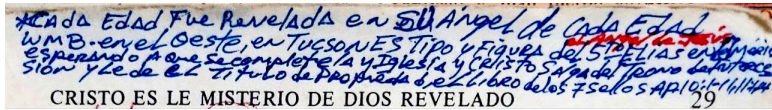 *Cada Edad Fue Revelada en SU Angel de cada Edad
W.M.B. en el Oeste, en TUCSON ES Tipo y Figura del 5to ELIAS en
esperando A que se complete la y Iglesia y CRISTO Salga del Trono de Intercesion
sion y Le de el Titulo de Propiedad o, el LIBRO de los 7 sellos AP. 10:1-11
CRISTO ES LE MISTERIO DE DIOS REVELADO 29